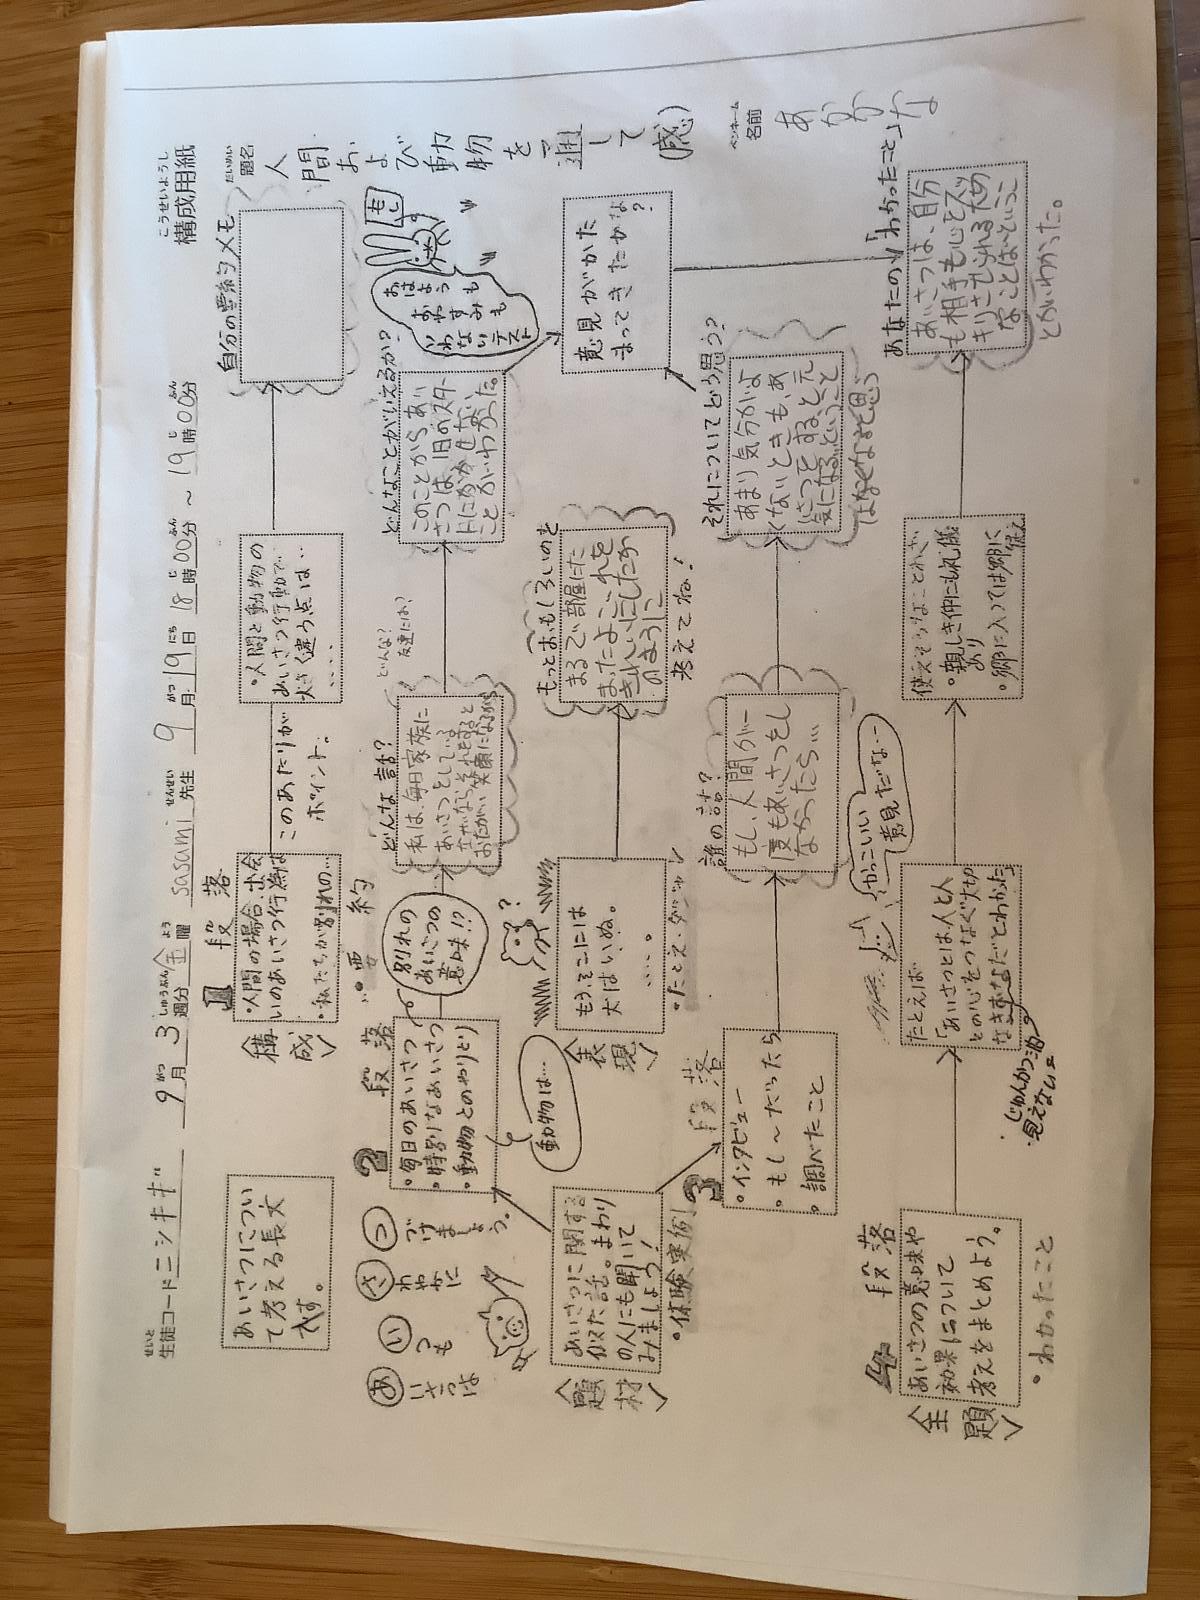 構成用紙
こうせいようし
生徒コード ニシキギ
せいと
9月3週分 金曜
がつ しゅうぶん よう
sasami 先生
せんせい
9月19日 18時00分～19時00分
がつ にち じ ふん じ ふん
題名
だいめい
人間および動物を通して(感)
ペンネーム
名前
あかかな
あいさつについ
て考える長文
です。
1段落
構成
・人間の場合、出会
いのあいさつ行為は
・私たちが別れの…
このあたりが
ポイント。
・人間と動物の
あいさつ行動で、
大きく違う点は
・・・・・
自分の要約メモ
・要約
あ いさつは
い つも
さ わやかに
つ づけましょう。
2段落
・毎日のあいさつ
・特別なあいさつ
・動物とのやりとり
別れの
あいさつの
意味!?
動物は…
どんな話?
私は、毎日家族に
あいさつをしている
なぜなら、それをすると
おたがい笑顔になるから
どんな?
友達には?
どんなことがいえるか?
このことからあい
さつは、1日のスター
トにかかせない
ことがいわかった。
おはよう も
おやすみ も
いわない
テスト
もし
〈題材〉
あいさつに関する
似た話。まわり
の人にも聞いて
みましょう!
・体験実例
〈表現〉
もうそこには
犬はいぬ。
・・・・・。
・たとえ・ダジャレ
?
もっとおもしろいのを
まるで、部屋にた
まったよごれを
きれいにしたか
のように
考えてね!
意見がかた
まってきたかな
?
3段落
・インタビュー
・もし～だったら
・調べたこと
誰の話?
もし、人間が一
度もあいさつをし
なかったら…
それについてどう思う?
あまり気分がよ
くないときも、あ
いさつをすると元
気になるということ
はなくなると思う
かっこいい
意見だな…
4段落
〈主題〉
あいさつの意味や
効果について
考えをまとめよう。
・わかったこと
たとえば
「あいさつとは人と人
との心をつなぐ大切
なきずなだとわかった」
じゅんかつ油
見えないェ
使えそうなことわざ
・親しき仲にも礼儀
あり
・郷に入っては郷に
従え
あなたの「わかったこと」
あいさつは、自分
も相手も心をスッ
キリさせられる大切
なことはということ
とがいわかった。